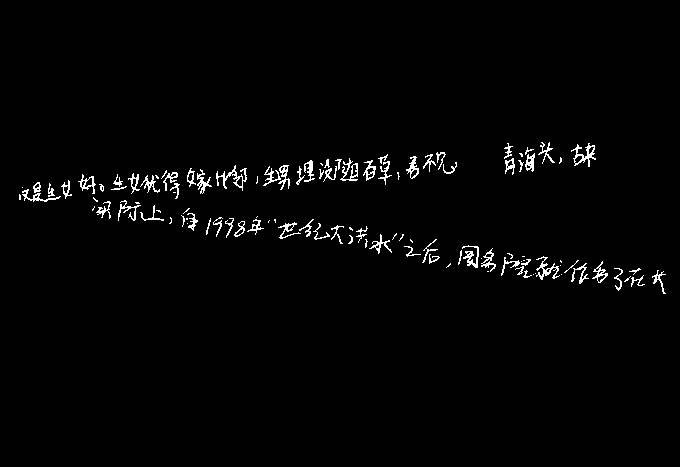 反是生女好。生女犹得嫁比邻,生男埋没随百草,君不见 青海头,古来
实际上,自1998年“世纪大洪水”之后,国务院就任务了在大